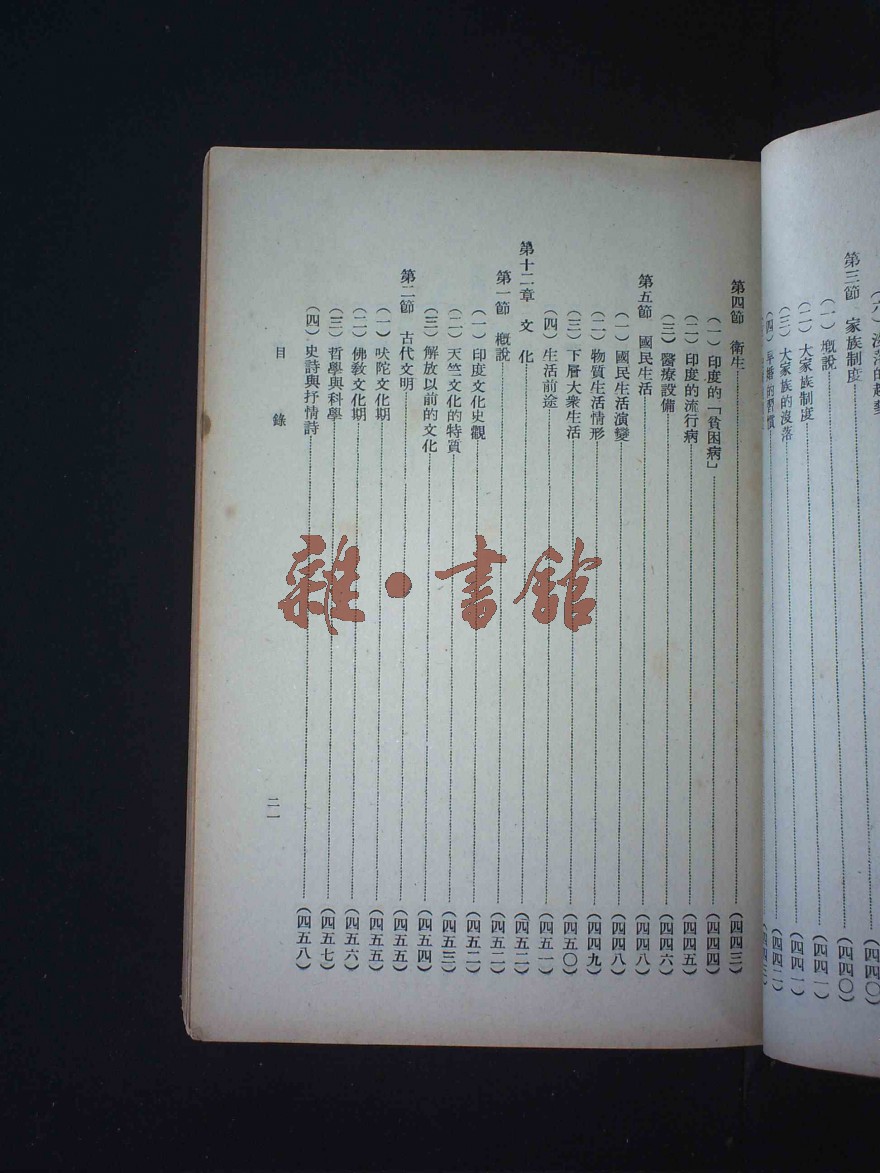 第三節　家族制度……（四四〇）
（一）概說……（四四一）
（二）大家族制度……（四四一）
（三）大家族的沒落……（四四二）
第四節　衛生……（四四三）
（一）印度的「貧困病」……（四四四）
（二）印度的流行病……（四四五）
（三）醫療設備……（四四六）
第五節　國民生活……（四四八）
（一）國民生活演變……（四四八）
（二）物質生活情形……（四四九）
（三）下層大衆生活……（四五〇）
（四）生活前途……（四五一）
第十二章　文　化……（四五二）
第一節　概說……（四五二）
（一）印度文化史觀……（四五二）
（二）天竺文化的特質……（四五三）
（三）解放以前的文化……（四五四）
第二節　古代文明……（四五五）
（一）吠陀文化期……（四五五）
（二）佛敎文化期……（四五六）
（三）哲學與科學……（四五七）
（四）史詩與抒情詩……（四五八）
目　錄
二一
雜·書館